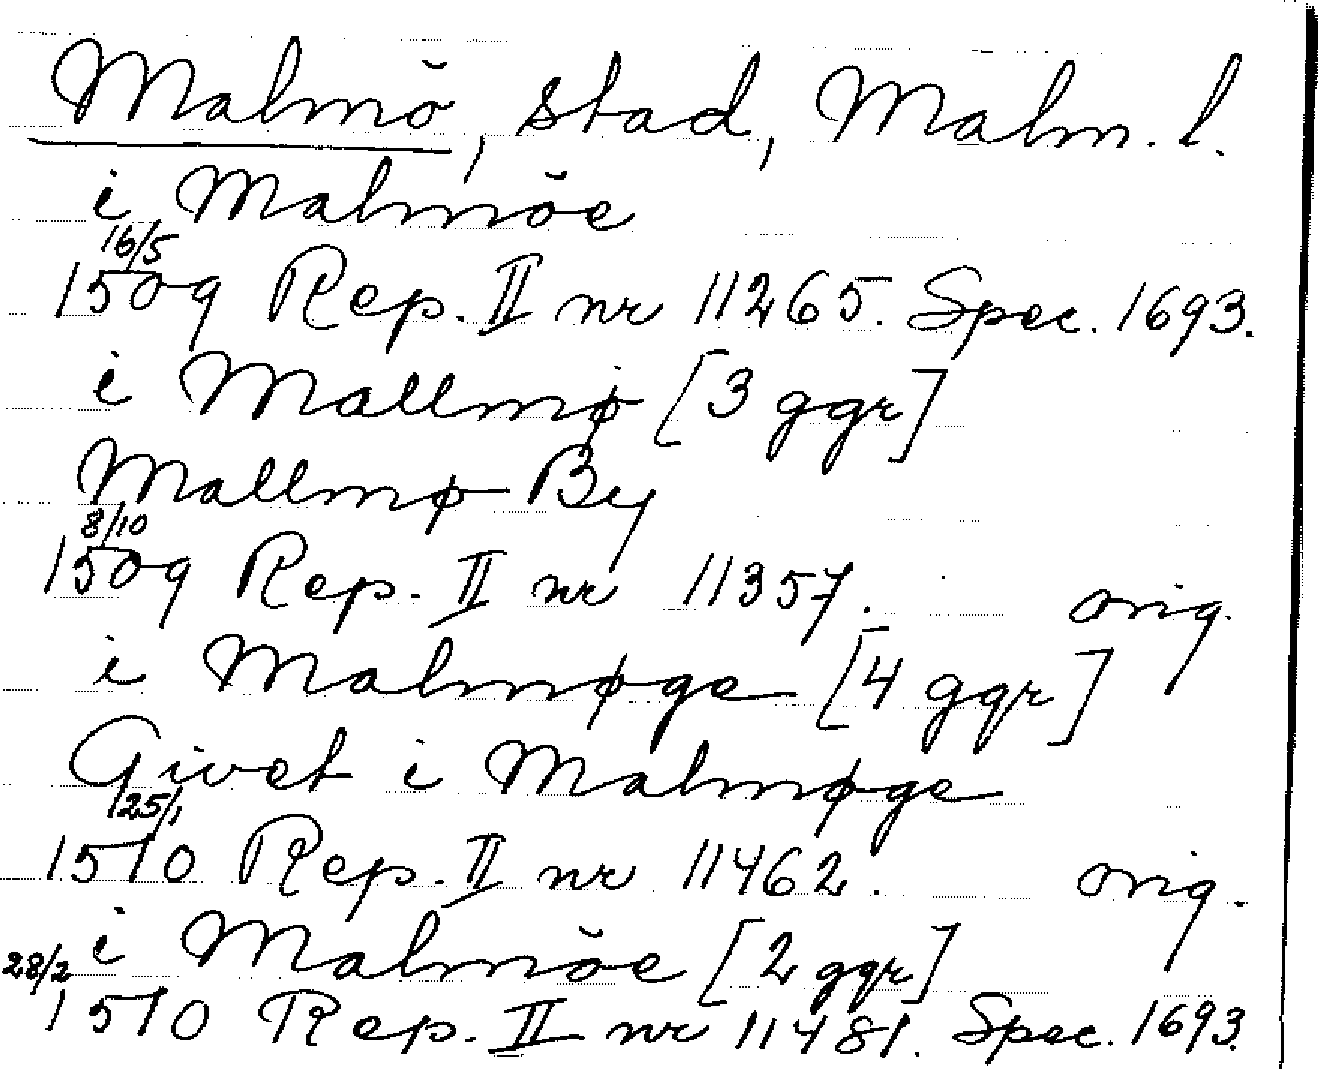 Malmö, stad, Malm. l.
i Malmöe
16/5
1509 Rep. II nr 11265. Spec. 1693.
i Mallmø [3 ggr]
Mallmø By
8/10
1509 Rep. II nr 11357. orig.
i Malmøge [4 ggr]
Givet i Malmøge
25/1
1510 Rep. II nr 11462. orig.
i Malmöe [2 ggr]
28/2
1510 Rep. II nr 11481. Spec. 1693.